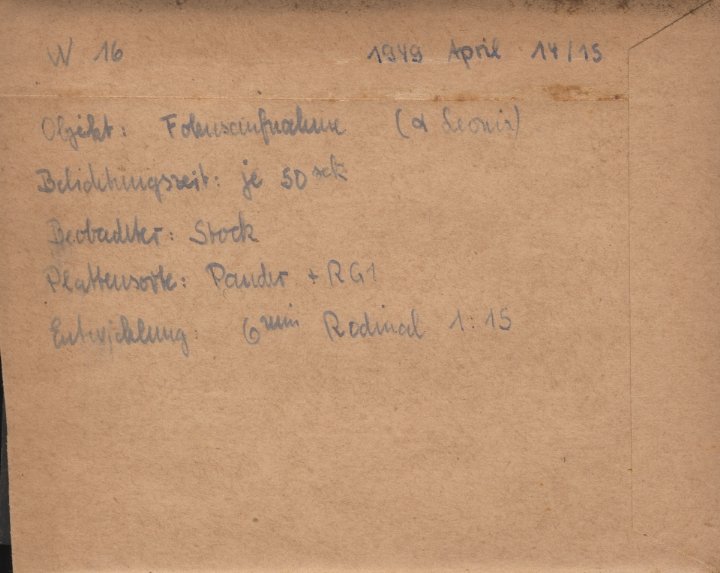 W 16 1949 April 14/15
Objekt: Fokusaufnahme (α Leonis)
Belichtungszeit: je 50 sek
Beobachter: Stock
Plattensorte: Pander + RG1
Entwicklung: 6 min Rodinal 1:15